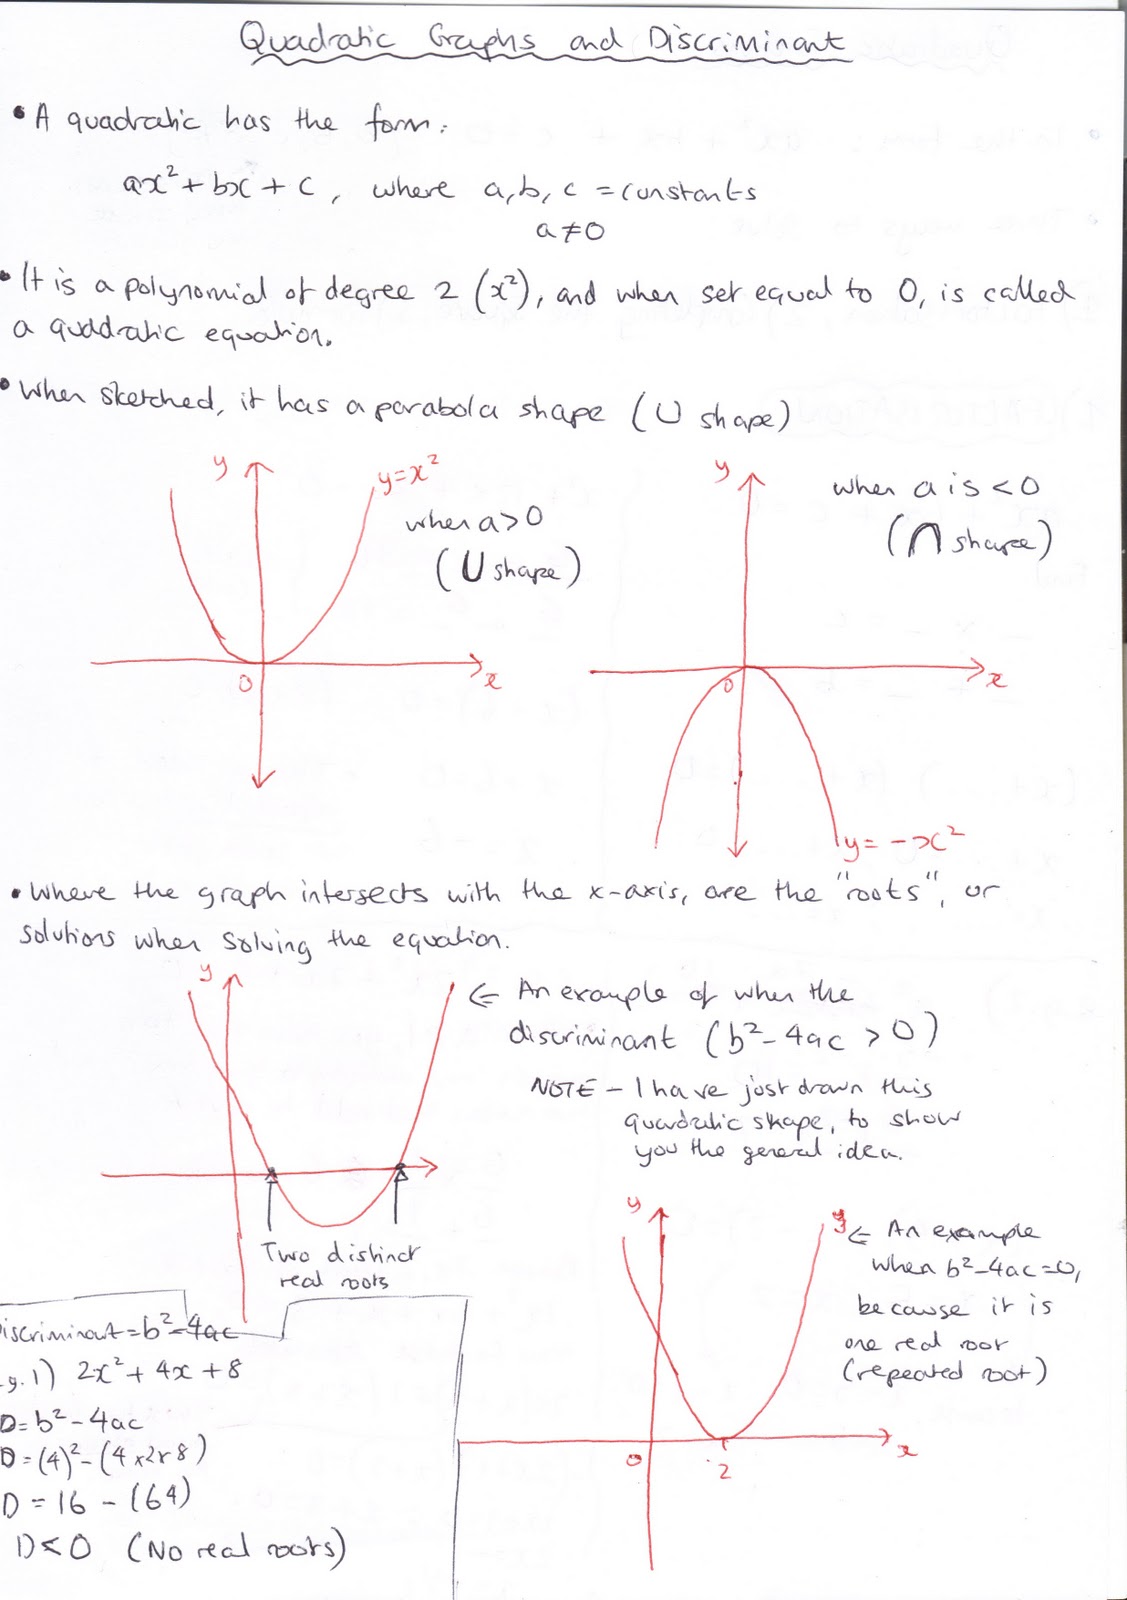 Quadratic Graphs and Discriminant
• A quadratic has the form:
ax² + bx + c, where a, b, c = constants
a ≠ 0
• It is a polynomial of degree 2 (x²), and when set equal to 0, is called
a quadratic equation.
• When sketched, it has a parabola shape (U shape)
y
y=x²
when a>0
(U shape)
0
x
y
when a is <0
(∩ shape)
0
x
y = -x²
• Where the graph intersects with the x-axis, are the "roots", or
solutions when solving the equation.
y
⇐ An example of when the
discriminant (b²-4ac > 0)
NOTE - I have just drawn this
quadratic shape, to show
you the general idea.
Two distinct
real roots
y
⇐ An example
when b²-4ac=0,
because it is
one real root
(repeated root)
0
2
x
iscriminant = b²-4ac
.g. 1) 2x² + 4x + 8
D = b² - 4ac
D = (4)² - (4 x 2 x 8)
D = 16 - (64)
D < 0 (No real roots)